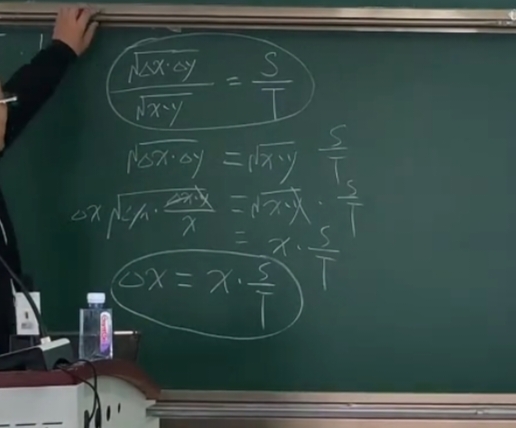 √Δx·Δy / √x·y = S/T
√Δx·Δy = √x·y S/T
Δx √ · Δx·y/x = √x·y · S/T
= x · S/T
Δx = x · S/T